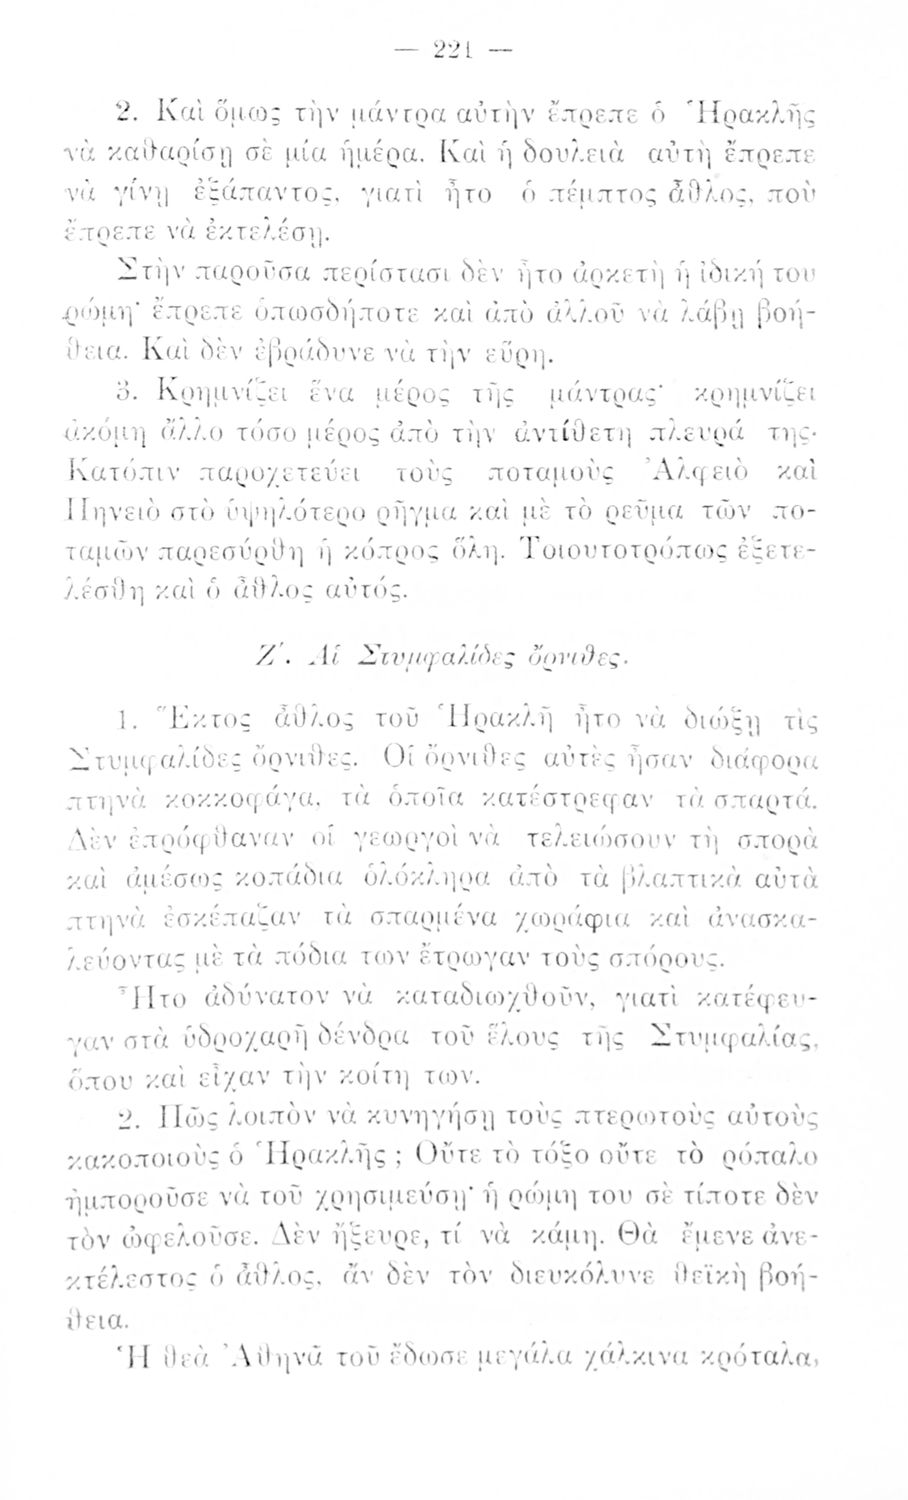 — 221 —
2. Καὶ ὅμως τὴν μάντρα αὐτὴν ἔπρεπε ὁ Ἡρακλῆς
νὰ καθαρίσῃ σὲ μία ἡμέρα. Καὶ ἡ δουλειὰ αὐτὴ ἔπρεπε
νὰ γίνῃ ἐξάπαντος, γιατὶ ἦτο ὁ πέμπτος ἆθλος, ποὺ
ἔπρεπε νὰ ἐκτελέσῃ.
Στὴν παροῦσα περίστασι δὲν ἦτο ἀρκετὴ ἡ ἰδική του
ρώμη· ἔπρεπε ὁπωσδήποτε καὶ ἀπὸ ἀλλοῦ νὰ λάβῃ βοή-
θεια. Καὶ δὲν ἐβράδυνε νὰ τὴν εὕρῃ.
3. Κρημνίζει ἕνα μέρος τῆς μάντρας· κρημνίζει
ἀκόμη ἄλλο τόσο μέρος ἀπὸ τὴν ἀντίθετη πλευρά της·
Κατόπιν παροχετεύει τοὺς ποταμοὺς Ἀλφειὸ καὶ
Πηνειὸ στὸ ὑψηλότερο ρῆγμα καὶ μὲ τὸ ρεῦμα τῶν πο-
ταμῶν παρεσύρθη ἡ κόπρος ὅλη. Τοιουτοτρόπως ἐξετε-
λέσθη καὶ ὁ ἆθλος αὐτός.
Ζʹ. Αἱ Στυμφαλίδες ὄρνιθες.
1. Ἕκτος ἆθλος τοῦ Ἡρακλῆ ἦτο νὰ διώξῃ τὶς
Στυμφαλίδες ὄρνιθες. Οἱ ὄρνιθες αὐτὲς ἦσαν διάφορα
πτηνὰ κοκκοφάγα, τὰ ὁποῖα κατέστρεφαν τὰ σπαρτά.
Δὲν ἐπρόφθαναν οἱ γεωργοὶ νὰ τελειώσουν τὴ σπορὰ
καὶ ἀμέσως κοπάδια ὁλόκληρα ἀπὸ τὰ βλαπτικὰ αὐτὰ
πτηνὰ ἐσκέπαζαν τὰ σπαρμένα χωράφια καὶ ἀνασκα-
λεύοντας μὲ τὰ πόδια των ἔτρωγαν τοὺς σπόρους.
Ἦτο ἀδύνατον νὰ καταδιωχθοῦν, γιατὶ κατέφευ-
γαν στὰ ὑδροχαρῆ δένδρα τοῦ ἕλους τῆς Στυμφαλίας,
ὅπου καὶ εἶχαν τὴν κοίτη των.
2. Πῶς λοιπὸν νὰ κυνηγήσῃ τοὺς πτερωτοὺς αὐτοὺς
κακοποιοὺς ὁ Ἡρακλῆς ; Οὔτε τὸ τόξο οὔτε τὸ ρόπαλο
ἠμποροῦσε νὰ τοῦ χρησιμεύσῃ· ἡ ρώμη του σὲ τίποτε δὲν
τὸν ὠφελοῦσε. Δὲν ἤξευρε, τί νὰ κάμῃ. Θὰ ἔμενε ἀνε-
κτέλεστος ὁ ἆθλος, ἂν δὲν τὸν διευκόλυνε θεϊκὴ βοή-
θεια.
Ἡ θεὰ Ἀθηνᾶ τοῦ ἔδωσε μεγάλα χάλκινα κρόταλα,